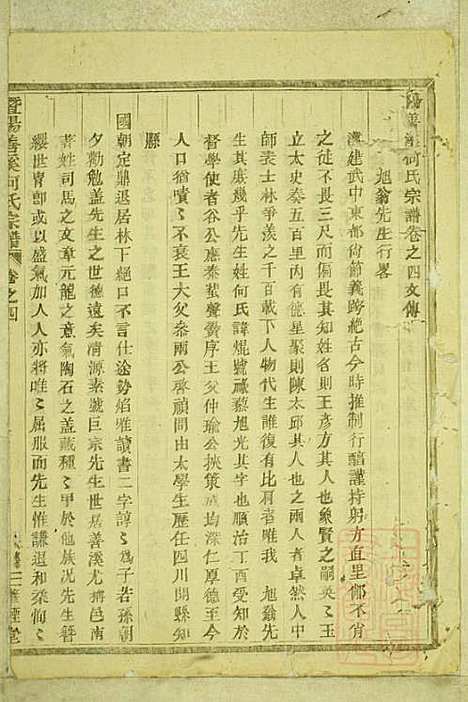 暨陽善溪何氏宗譜卷之四文傳
旭翁先生行畧
漢建武中東都術節義跨絶古今時推制行醕謹持躬方直里鄙不肖
之徒不畏三尺而偏畏其知姓名則王彥方其人也象賢之嗣英〻玉
立太史奏五百里內有德星聚則陳太邱其人也之兩人者卓然人中
師表士林爭羨之千百載下人物代生誰復有比肩者唯我 旭翁先
生其庶幾乎先生姓何氏諱焜號藜旭光其字也順治丁酉受知
督學使者谷公應泰蜚聲黌序王父仲瑜公挾策成均深仁厚德至今
人口猶嘖〻不衰王大父泰兩公啓禎間由太學生歷任四川開縣知
縣
國朝定鼎退居林下絕口不言仕途勢焰雅讀書二字諄〻爲子若孫朝
夕勸勉蓋先生之世德遠矣清源素號巨宗先生世居善溪尤稱邑南
著姓司馬之文章元龍之意氣陶石之蓋藏種〻甲於他族况先生簪
纓世胄卽或以盛氣加人人亦將唯〻屈服而先生惟謙退和柔恂〻
暨陽善溪何氏宗譜 卷之四